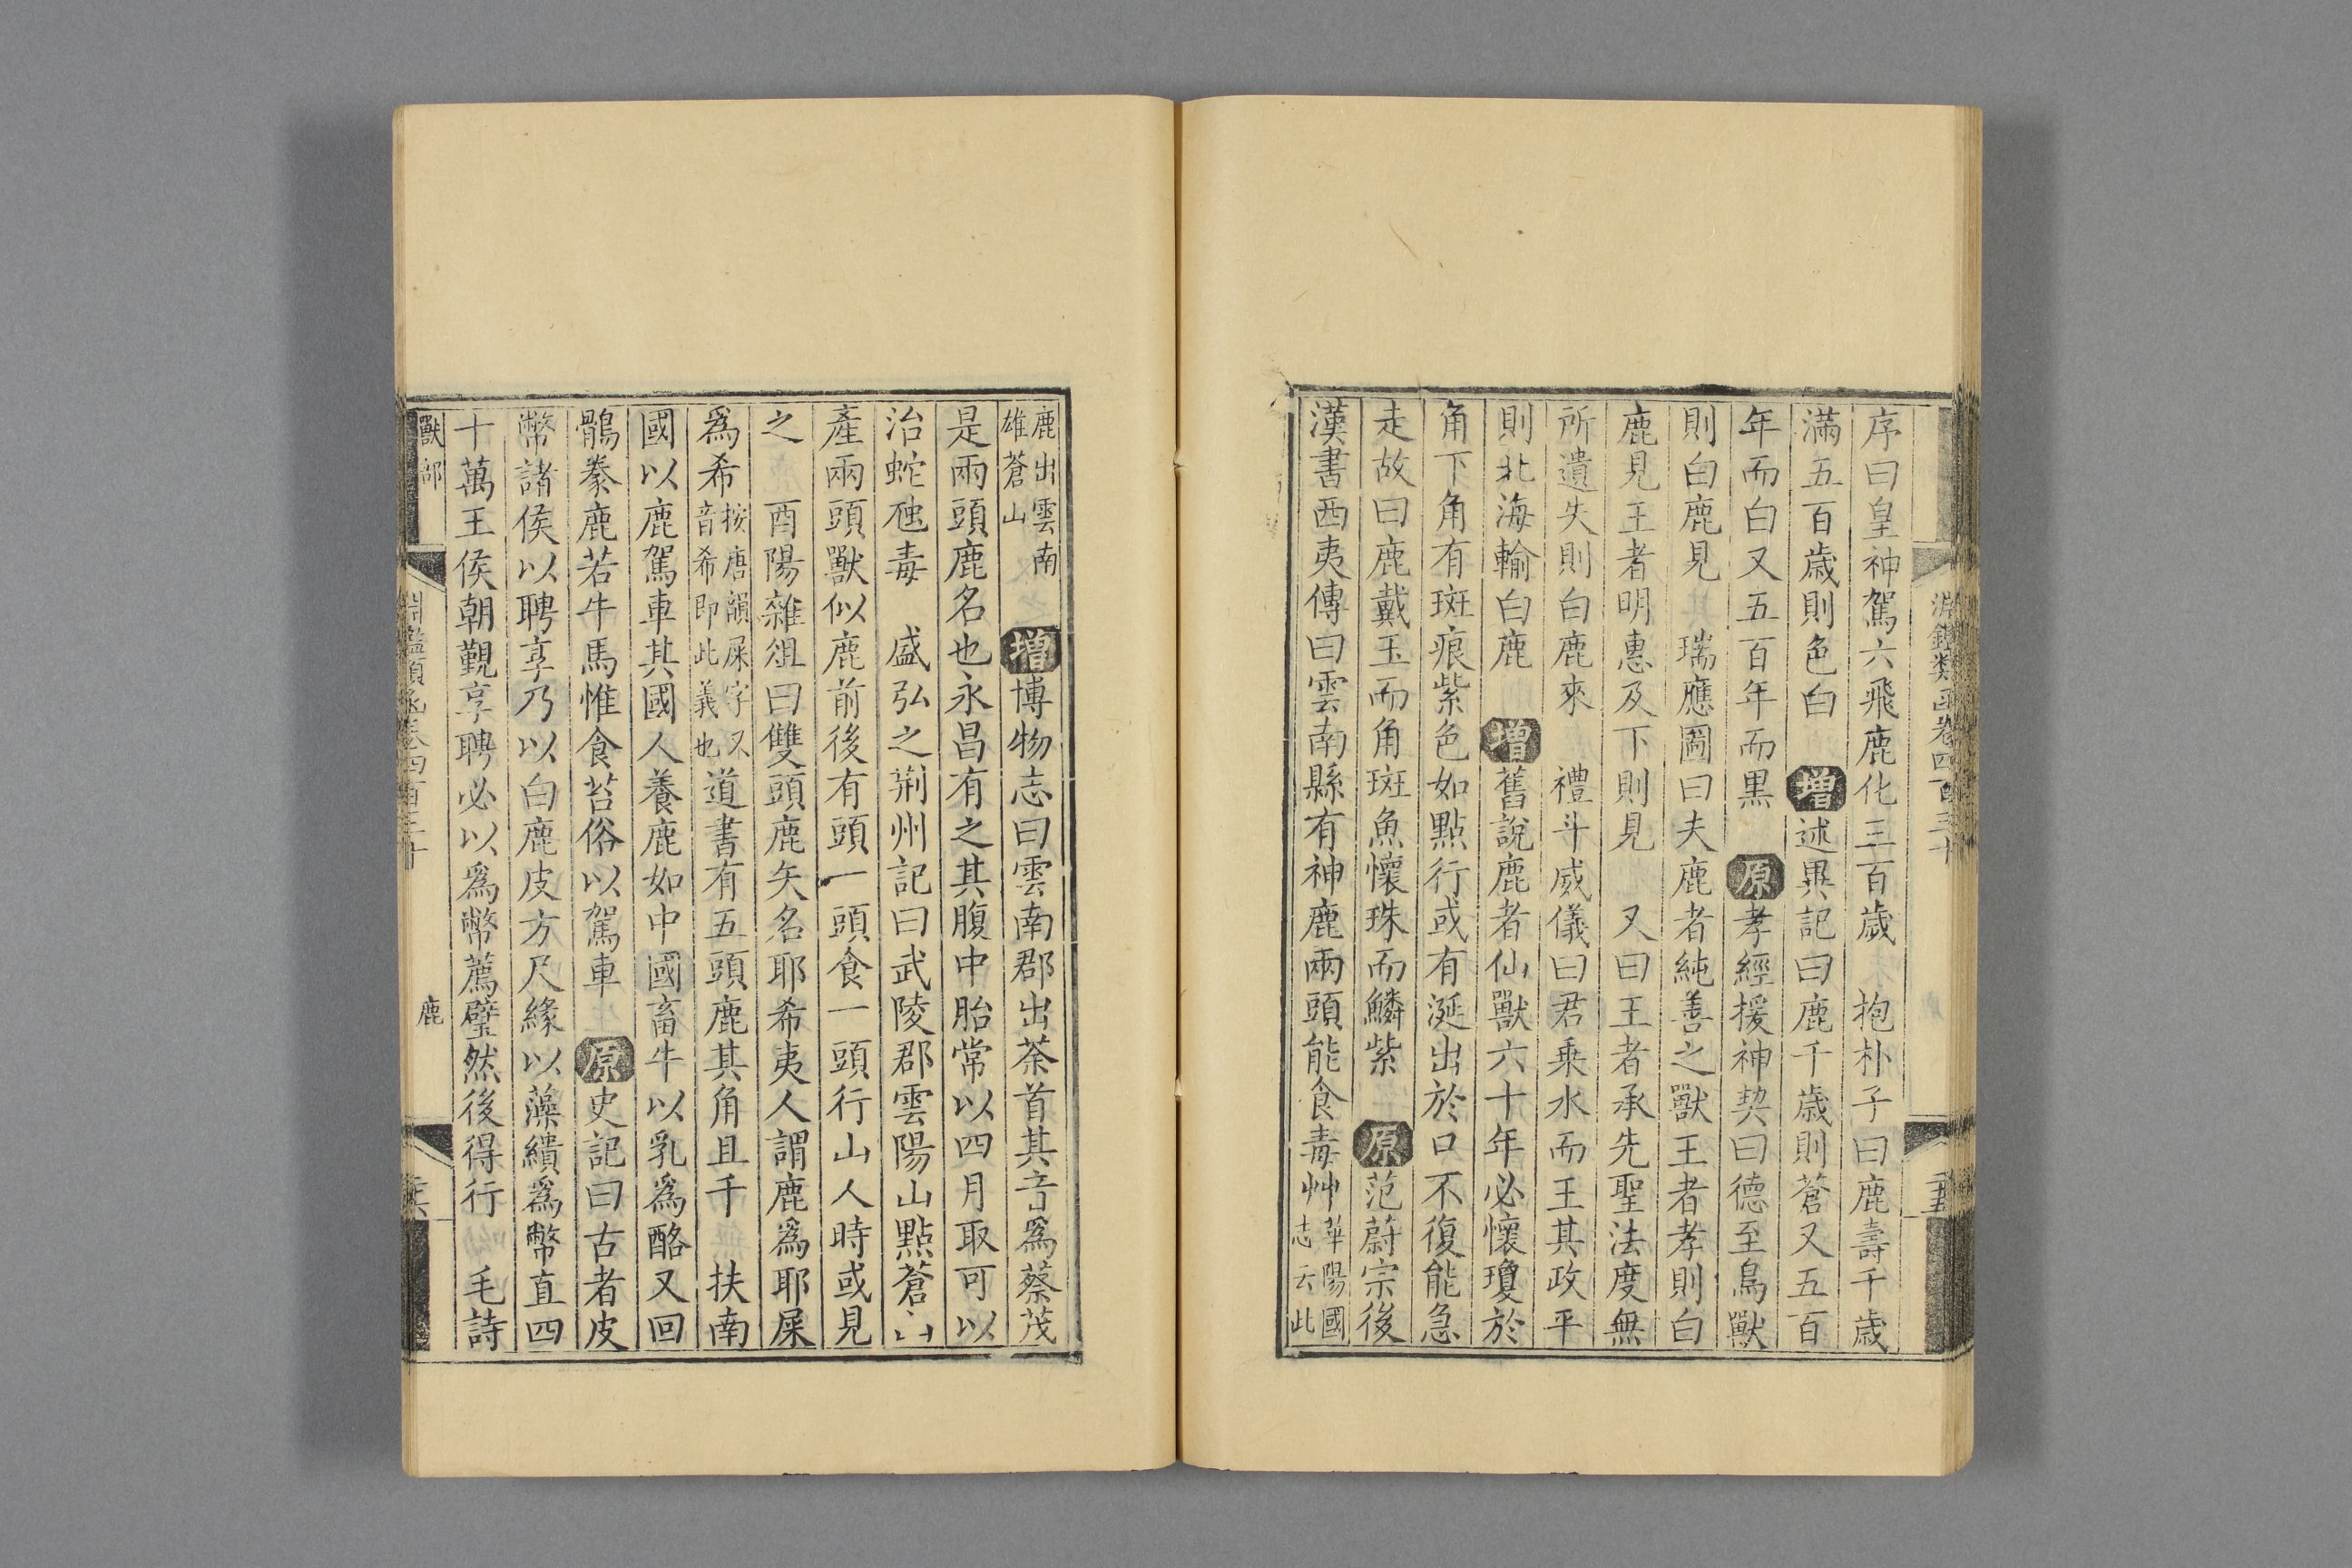 淵鑑類函卷四百三十
序曰皇神駕六飛鹿化三百歲　抱朴子曰鹿壽千歲
滿五百歲則色白　增述異記曰鹿千歲則蒼又五百
年而白又五百年而黑　原孝經援神契曰德至鳥獸
則白鹿見　瑞應圖曰夫鹿者純善之獸王者孝則白
鹿見王者明惠及下則見　又曰王者承先聖法度無
所遺失則白鹿來　禮斗威儀曰君乘水而王其政平
則北海輸白鹿　增舊說鹿者仙獸六十年必懷瓊於
角下角有斑痕紫色如點行或有涎出於口不復能急
走故曰鹿戴玉而角斑魚懷珠而鱗紫　原范蔚宗後
漢書西夷傳曰雲南縣有神鹿兩頭能食毒艸華陽國志云此
鹿出雲南雄蒼山　增博物志曰雲南郡出荼首其音爲蔡茂
是兩頭鹿名也永昌有之其腹中胎常以四月取可以
治蛇虺毒　盛弘之荆州記曰武陵郡雲陽山點蒼山
產兩頭獸似鹿前後有頭一頭食一頭行山人時或見
之　酉陽雜俎曰雙頭鹿矢名耶希夷人謂鹿爲耶屎
爲希按唐韻屎字又音希即此義也道書有五頭鹿其角且千　扶南
國以鹿駕車其國人養鹿如中國畜牛以乳爲酪又回
鶻豢鹿若牛馬惟食苔俗以駕車　原史記曰古者皮
幣諸侯以聘享乃以白鹿皮方尺緣以藻繢爲幣直四
十萬王侯朝覲享聘必以爲幣薦璧然後得行　毛詩
獸部　淵鑑類函卷四百三十　鹿